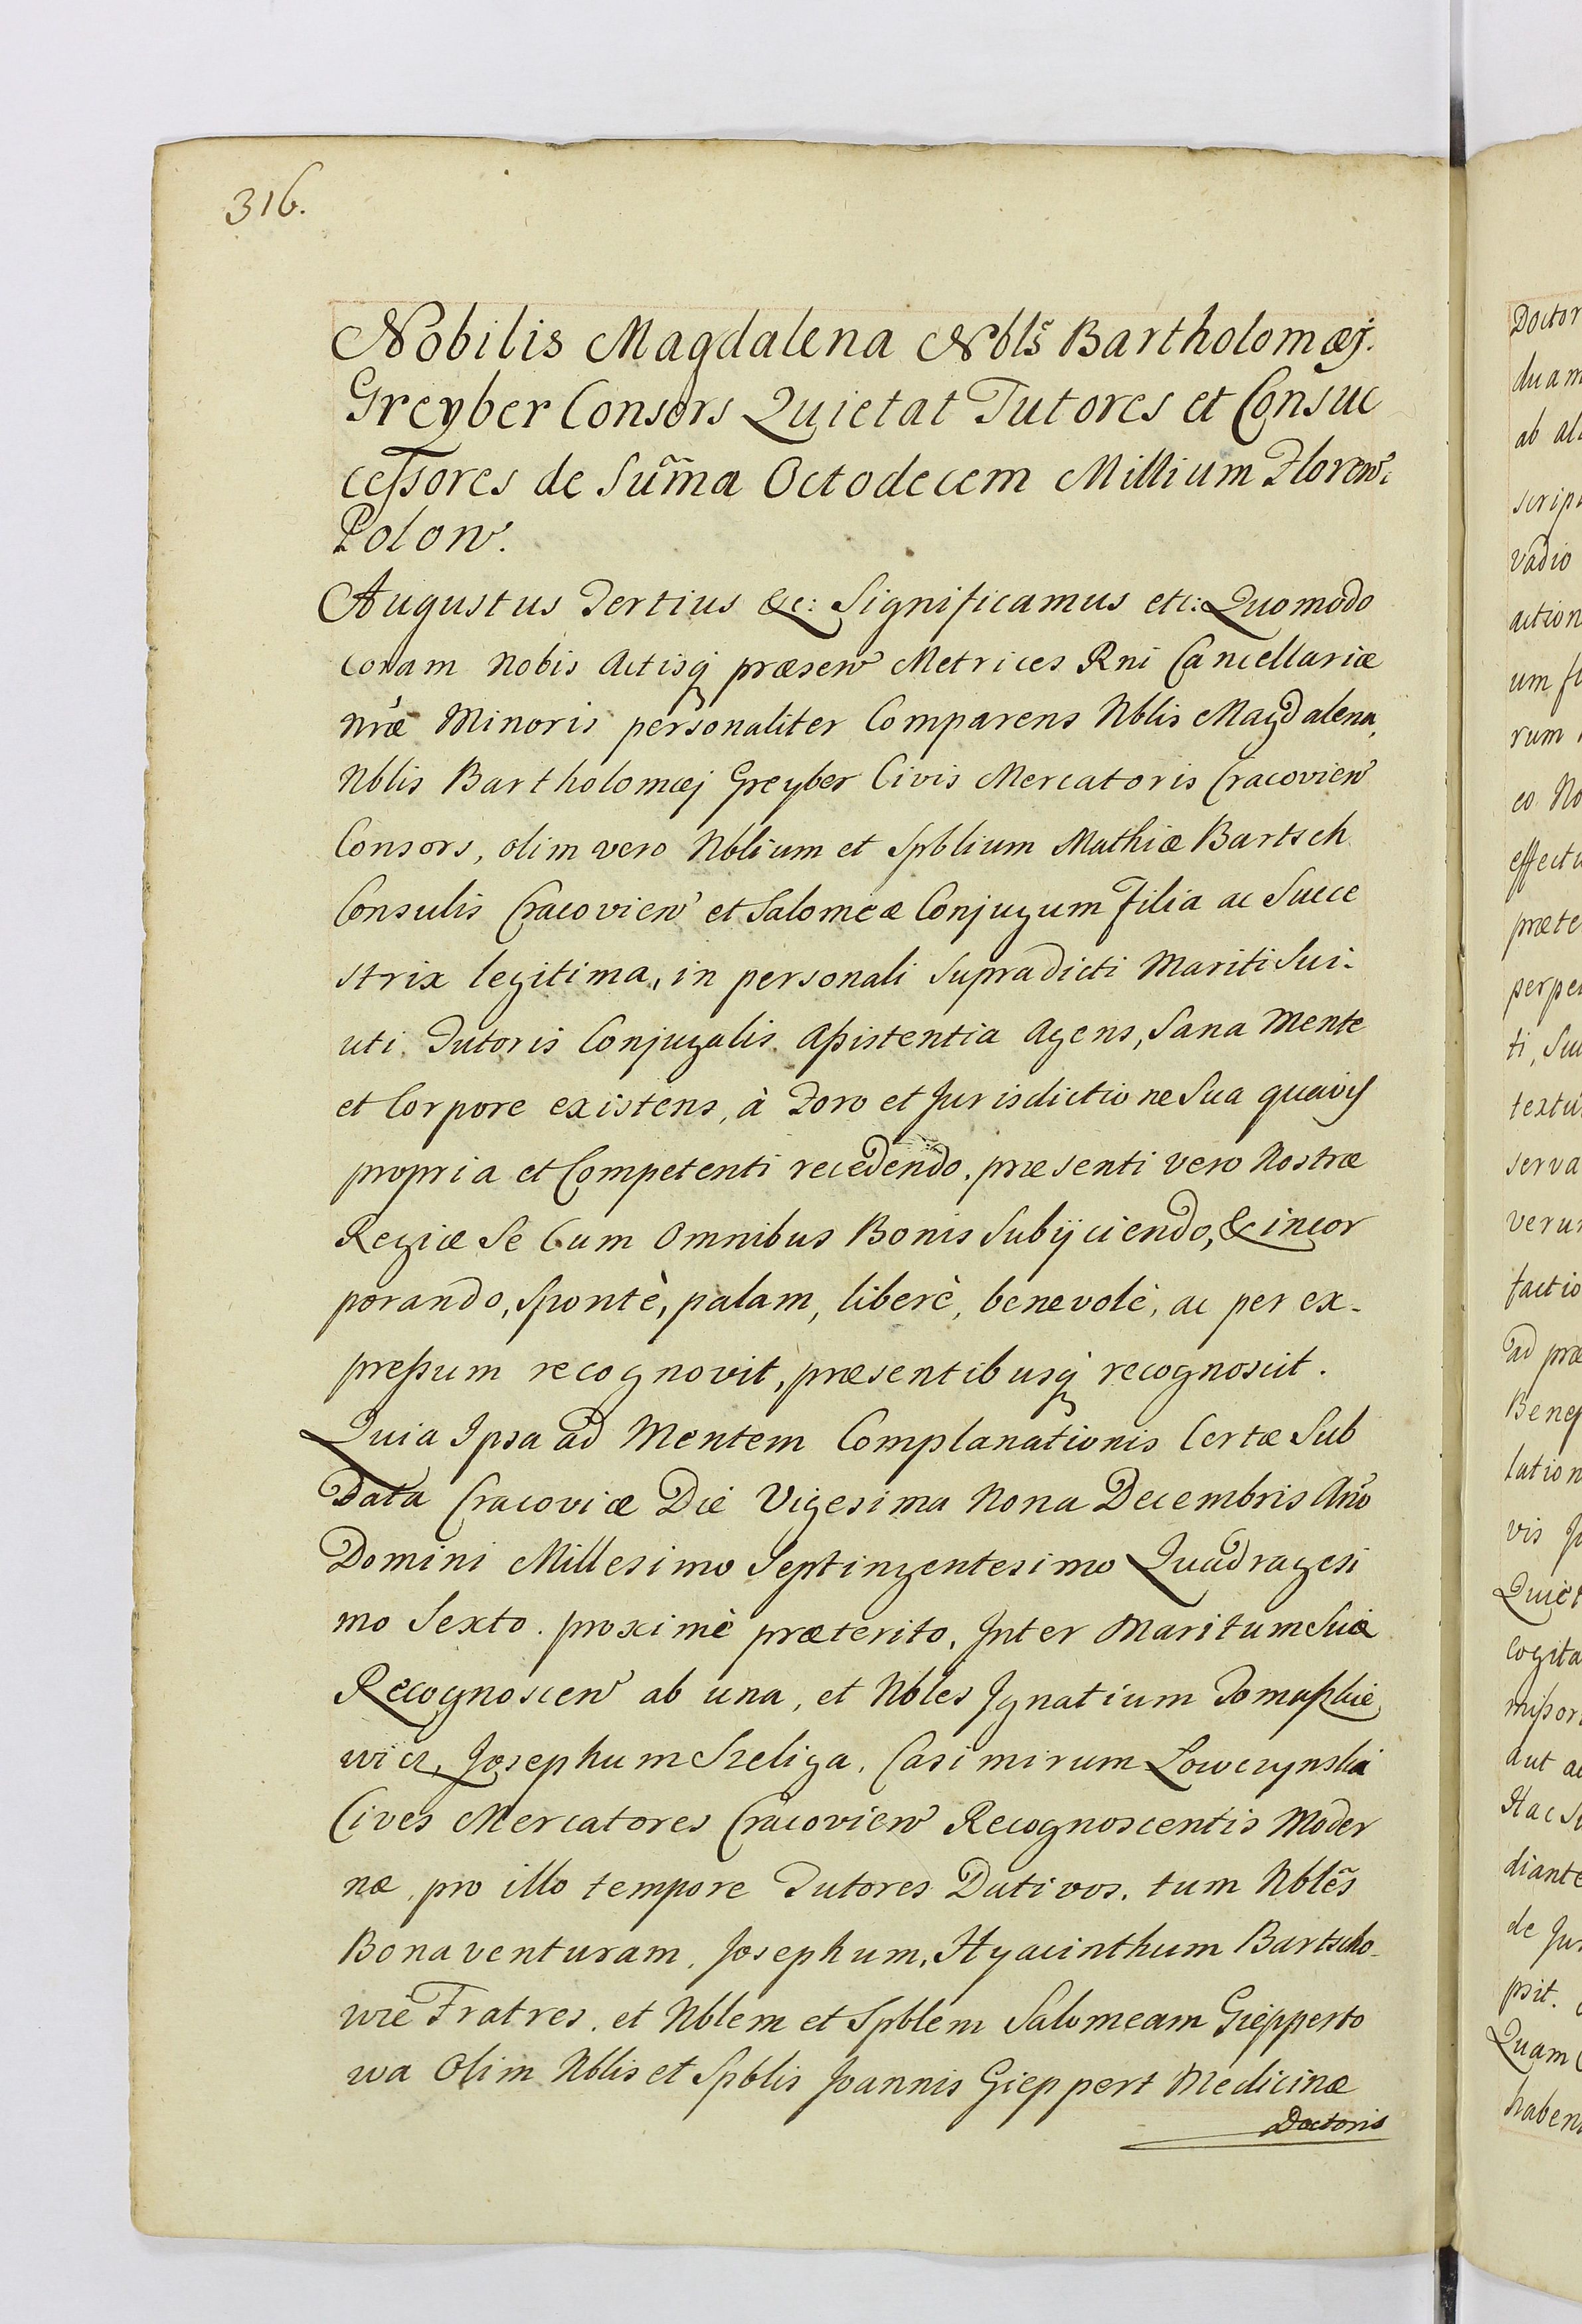 316.
Nobilis Magdalena Nbls̃ Bartholomæj.
Greyber Consors Quietat Tutores et Consuc
cessores de Sum̃a Octodecem Millium Floren̄:
Polon̄.
Augustus Tertius &c: Significamus etc: Quomodo
coram nobis Actisq̢ præsen̄ Metrices Rni Cancellariæ
nr̃æ Minoris personaliter Comparens Nblis Magdalena,
Nblis Bartholomæj Greyber Civis Mercatoris Cracovien̄
Consors, olim vero Nblium et Spblium Mathiæ Bartsch
Consulis Cracovien̄ et Salomeæ Conjugum Filia ac Succe
strix legitima, in personali supradicti Mariti Sui
uti Tutoris Conjugalis Assistentia Agens, Sana Mente
et Corpore existens, à Foro et Jurisdictione Sua quavis
propria et Competenti recedendo, præsenti vero Nostræ
Regiæ Se Cum Omnibus Bonis Subijciendo, & incor
porando, Spontè, palam, liberè, benevolè, ac per ex-
pressum recognovit, præsentibusq̢ recognoscit.
Quia Ipsa ad Mentem Complanationis Certæ Sub
Data Cracoviæ Die Vigesima Nona Decembris An̄o
Domini Millesimo Septingentesimo Quadragesi
mo Sexto proximè præterito, Inter Maritum Suæ
Recognoscen̄ ab una, et Nbles Ignatium Tomaszkie
wicz, Josephum Szeliga, Casimirum Lowczynski
Cives Mercatores Cracovien̄ Recognoscentis Moder
næ, pro illo tempore Tutores Dativos, tum Nblẽs
Bonaventuram, Josephum, Hyacinthum Bartscho-
wie Fratres, et Nblem et Spblem Salomeam Giepperto
wa Olim Nblis et Spblis Joannis Gieppert Medicinæ
Doctoris
Doctor
duam
ab al
scrip
vadio
action
um
rum
eo No
effectu
præte
perpe
ti, Su
textu
serva
veru
factio
ad præ
Benep
lation
vis
Quiet
cogita
missor
aut a
Hac S
diante
de Ju
psit.
Quam
haben